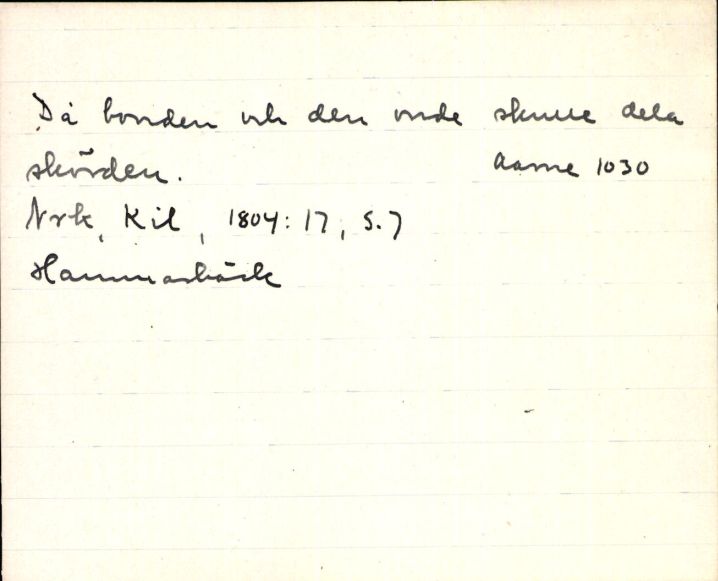 Då bonden och den onde skulle dela
skörden. Aarne 1030
Nrk, Kil, 1804:17, S.7
Hammarbäck